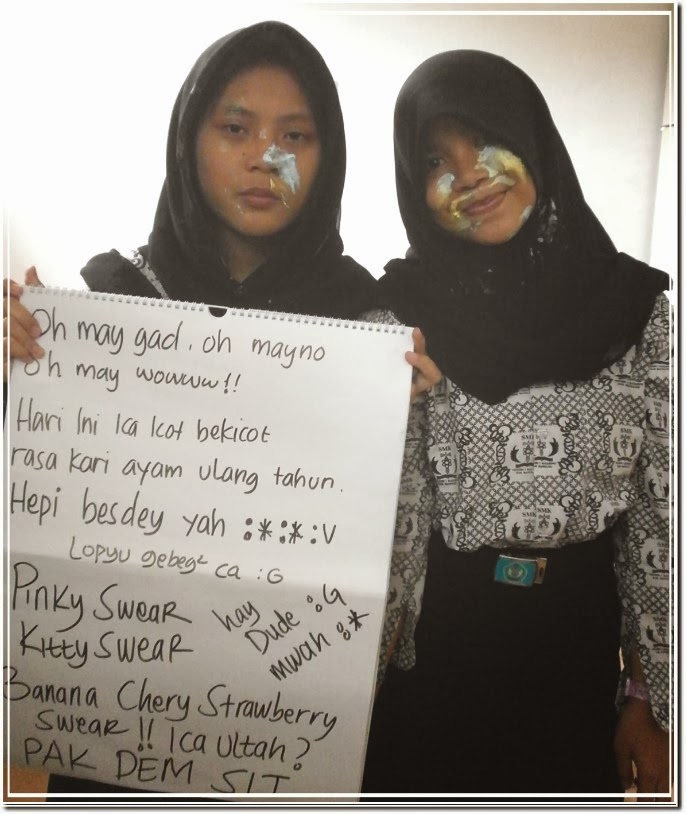 Oh may gad, oh mayno
oh may wowww!!
Hari Ini Ica Icot bekicot
rasa kari ayam ulang tahun.
Hepi besdey yah :*:*:V
Lopyu gebeg² ca :G
Pinky Swear
Kitty Swear
hay
Dude :G
mwah :*
Banana Chery Strawberry
Swear!! Ica Ultah?
PAK DEM SIT
SMK
SMK